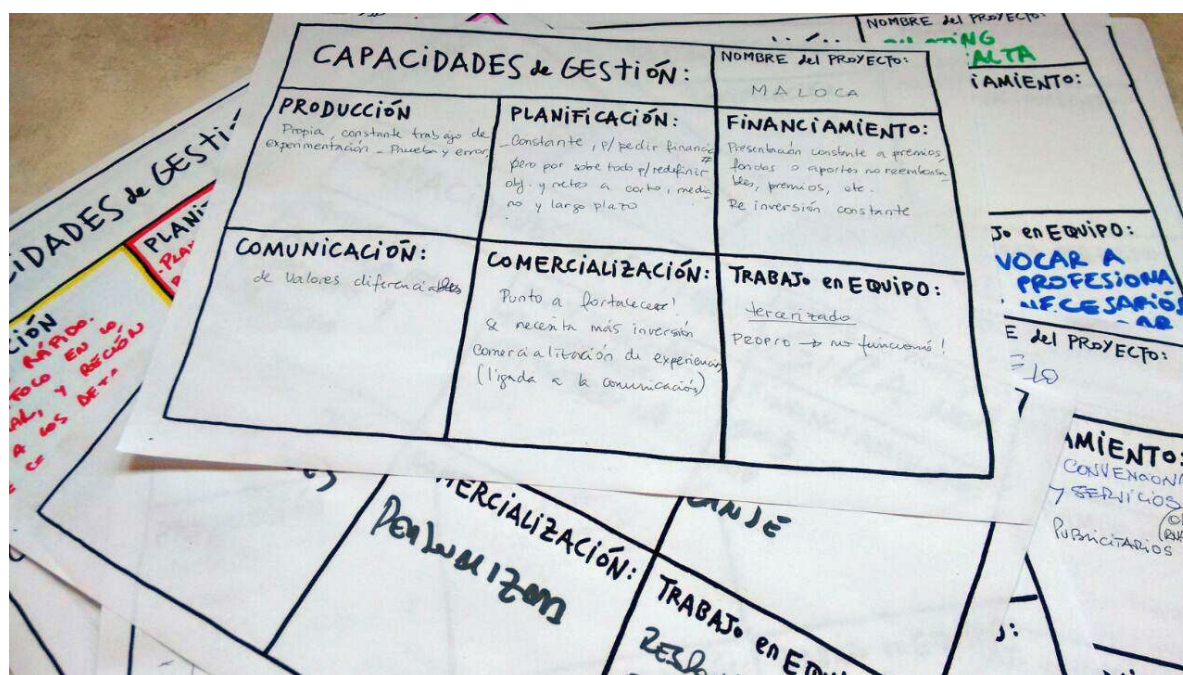 CAPACiDADES de GESTióN:
NOMBRE del PROYECTO:
MALOCA
PRODUCCIóN
Propia, constante trabajo de
experimentación - Prueba y error
PLANiFiCACIÓN:
- Constante, p/ pedir financia
#
pero por sobre todo p/ redefinir
obj. y metas a corto, media
no y largo plazo
FiNANCiAMIENTO:
Presentación constante a premios,
fondos o aportes no reembolsa
bles, premios, etc.
Re inversión constante
COMUNICACIÓN:
de valores diferenciables
COMERCIALIZACIÓN:
Punto a fortalecer!
se necesita más inversión
Comercialización de experiencias
(ligada a la comunicación)
TRABAJo en EQUiPO:
tercerizado
PROPIO → no funcionó!
NOMBRE del PROYECTO:
ALTA
iAMIENTO:
Jo en EQUiPO:
VOCAR A
PROFESIONA
NECESARIOS
E del PROYECTO:
AMiENTO:
CONVENCION
Y SERVICIOS
PUBLICITARIOS
iDADES de GESTi
PLANi
CIÓN
RÁPIDO.
FOCO EN LO
AL, Y RECIÓN
A LOS DETA
MERCIALIZACIÓN:
TRABAJo en EQUi